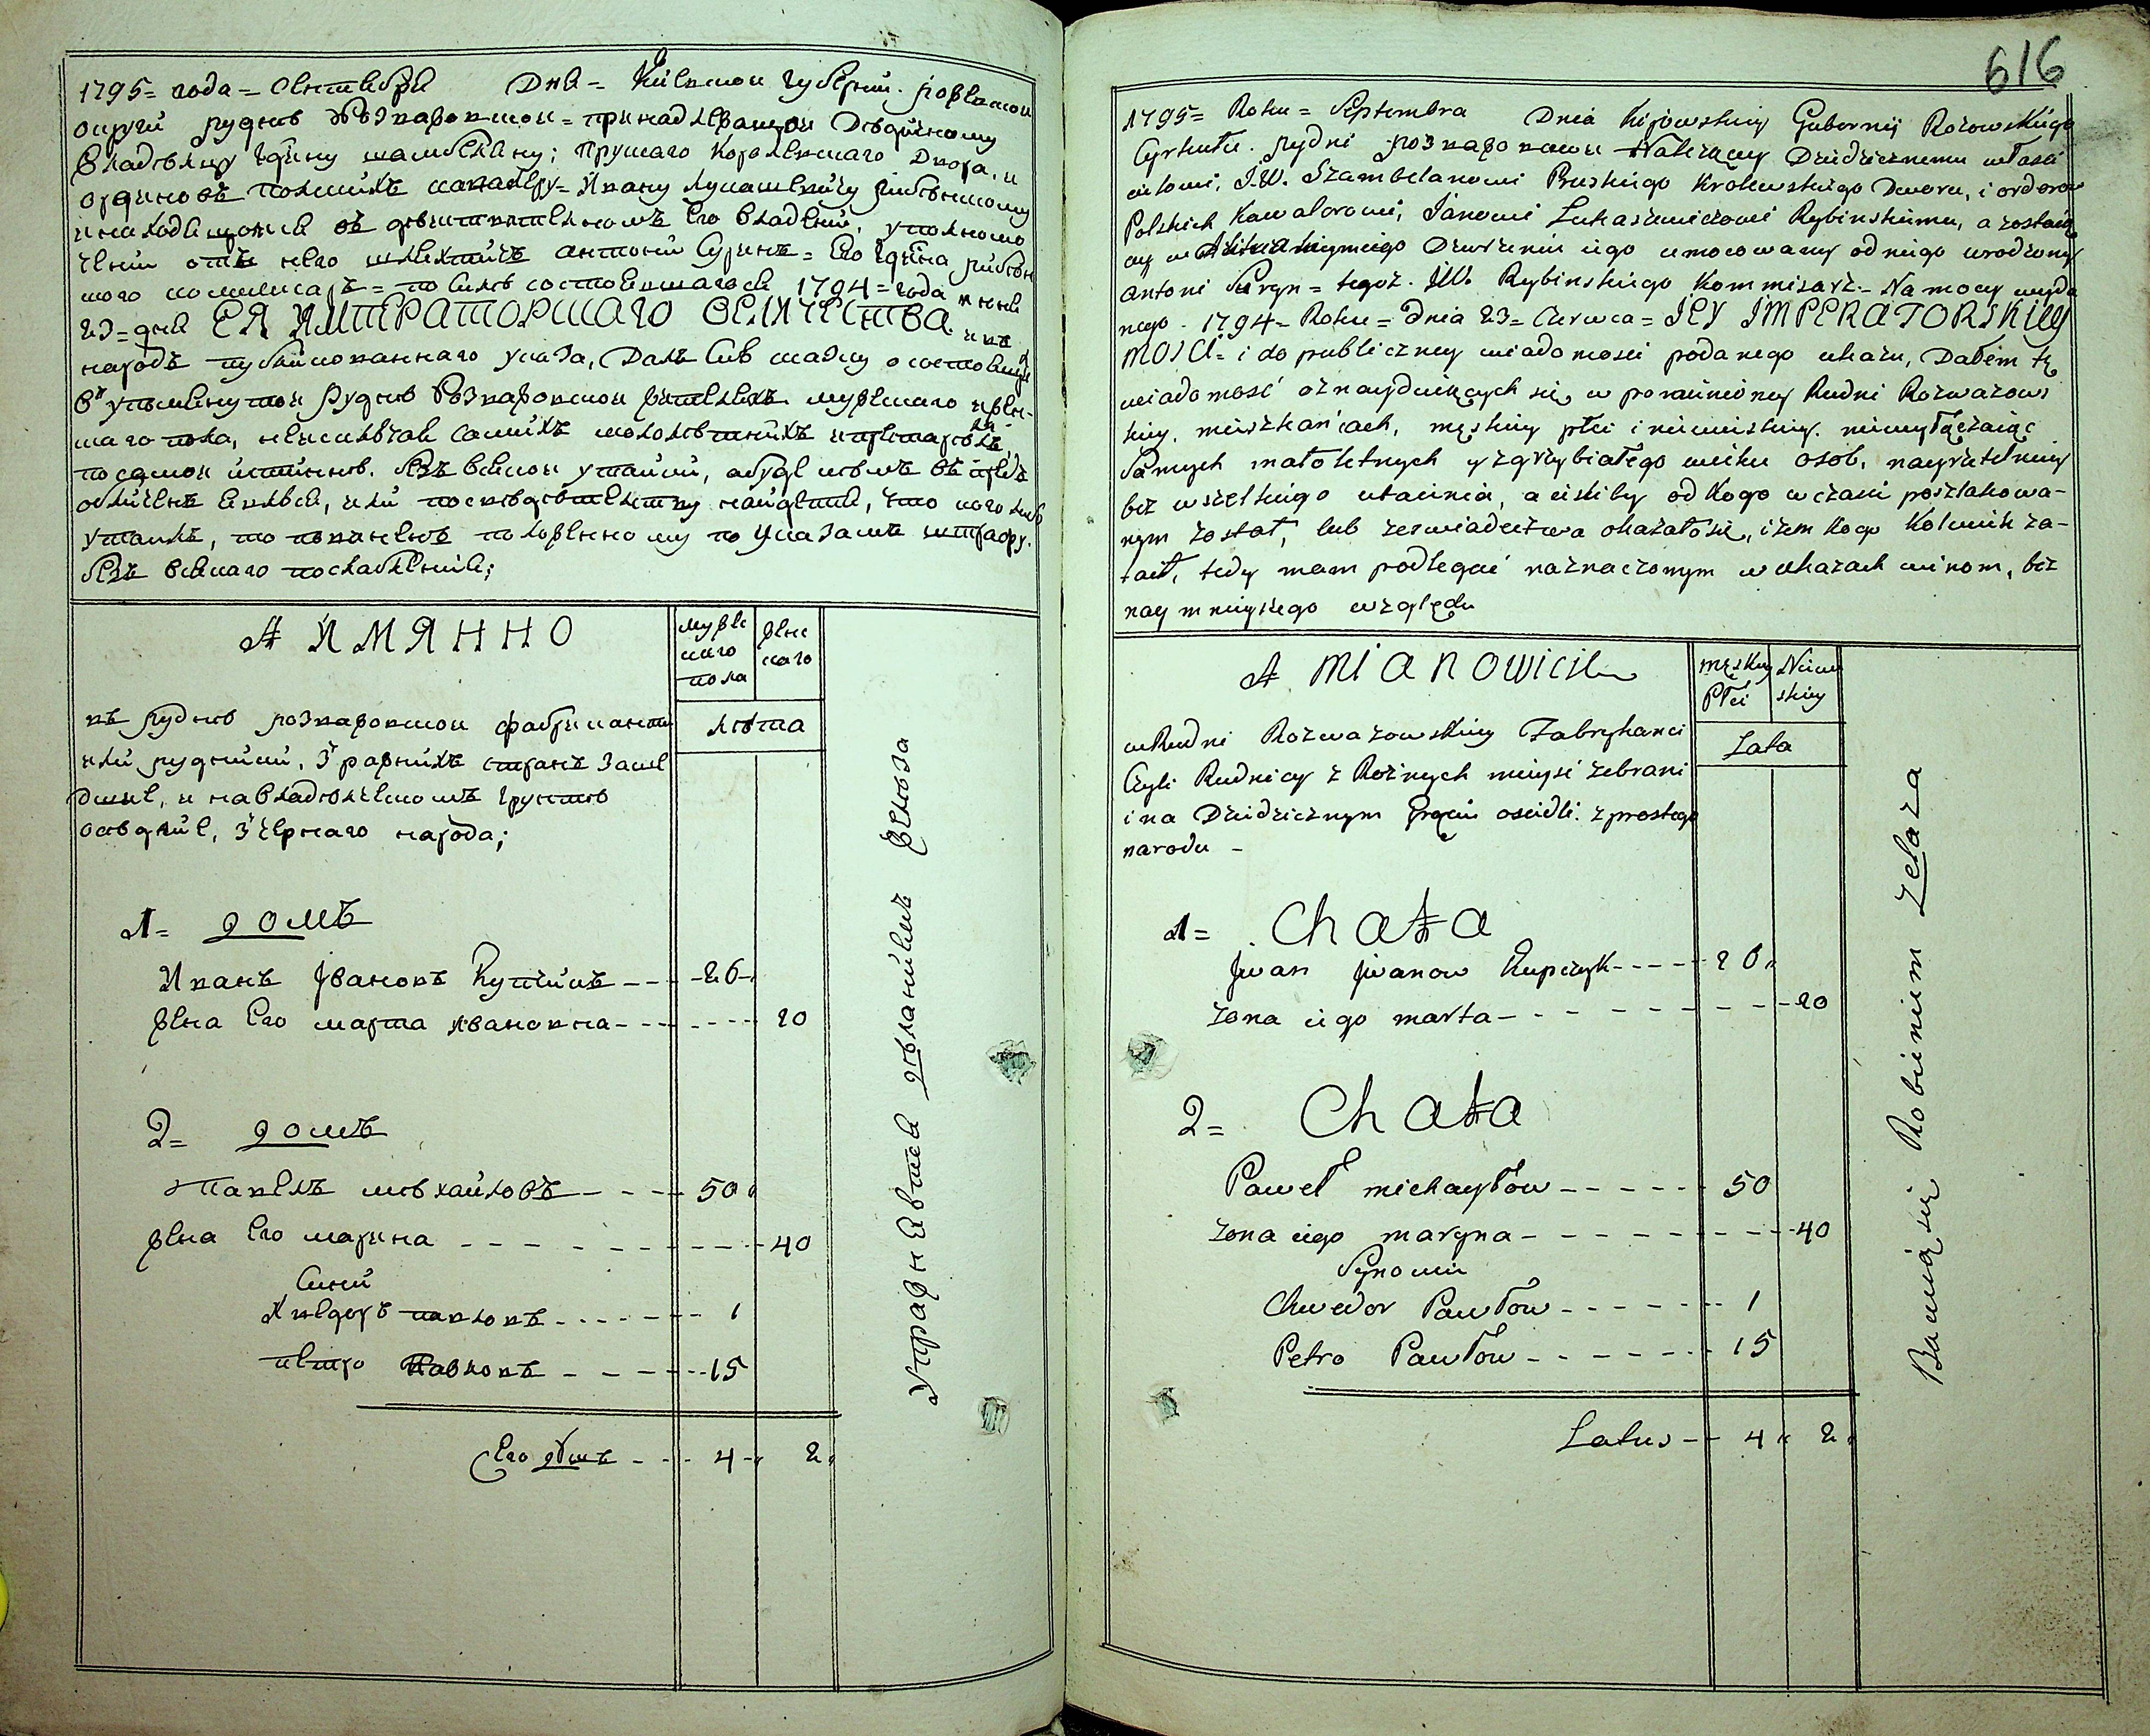 1795= года = Октября Дня = Киевской губернии. рожевской
округи рудни Розважовской = принадлежащой Дедичному
владельцу Гдину шамбеляну; Прускаго Королевскаго Двора, и
орденовъ полскихъ кавалеру = Ивану Лукашевичу рибинскому
и находящоися въ действительномъ его владении, уполномо
чений отъ него шляхтичъ антоний Суринъ = Его Гдина рибин
ского комисаръ = по силе состоявшагося 1794 = года июня
23 = дня ЕЯ ИМПЕРАТОРСКАГО ВЕЛИЧЕСТВА и въ
народъ публикованнаго указа, Далъ сию сказку о состоящихъ
въ упомянутой Рудне Розважовской жителяхъ мужескаго и жен-
скаго пола, не исключая самихъ малолетнихъ и престарелихъ,
по самой истинне. безъ всякой утайки, а буде кемъ въ предъ
обличенъ явлюся, или по свидетельству найдется, что кого либо
утаилъ, то повиненъ положенному по Указамъ штрафу.
безъ всякаго послабления;
А ИМЯННО
муже
скаго
пола
женс
каго
въ рудне розважовской фабриканти
или рудники, з разнихъ странъ зашед
шие, и на владелческомъ грунте
оседлие, з чернаго народа;
лета
1= домъ
Иванъ Ивановъ Купчикъ --- 26
жена Его марта Ивановна --- 20
2= домъ
Павелъ михайловъ --- 50
жена Его марина --- 40
Сини
Хведоръ павловъ --- 1
петро Павловъ --- 15
Его обшъ --- 4 2
Упражняются деланиемъ железа
616
1795= Roku = Septembra Dnia Kijowskiey Gubernij Rożowskiego
Cyrkułu. рудni розважовской Należącey Dziedzicznemu właści
cielowi, J.W. Szambelanowi Pruskiego Krolewskiego Dworu, i orderow
Polskich Kawalorowi, Janowi Lukaszewiczowi Rybinskiemu, a zostaią
cey w Aktualnym iego Dzierżeniu iego umocowany od niego urodzony
Antoni Suryn = tegoż. JW. Rybinskiego Kommisarz.- Na mocy wyda
nego. 1794 = Roku = Dnia 23 = Czerwca = JEY IMPERATORSKIEY
MOSCI = i do publiczney wiadomosci podanego ukazu, Dałem tę
wiadomość o znayduiących się w pomienioney Rudni Rozważows
kiey. mieszkańcach, męskiey płci i niewieskiey. niewyłączaiąc
Samych małoletnych y zgrzybiałego wieku osob, nayrzetelniey
bez wszelkiego utaienia, a ieśliby od kogo w czasie poszlakowa-
nym został, lub ze świadectwa okazało się, iżem kogo kolwiek za-
taił, tedy mam podlegać naznaczonym w ukazach winom, bez
naymnieyszego względu
A MIANOWICIE
męskiey
Płci
Niewie
skiey
w Rudni Rozważowskiey Fabrykanci
Czyli Rudnicy z Rożnych mieysc zebrani
i na Dziedzicznym Gruncie osiedli. z prostego
narodu -
Lata
1= Chata
Jwan Jwanow Kupczyk --- 26
Zona iego marta --- 20
2= Chata
Paweł michayłow --- 50
Zona iego maryna --- 40
Synowie
Chwedor Pawłow --- 1
Petro Pawłow --- 15
Latus -- 4 2
Bawią się Robieniem żelaza